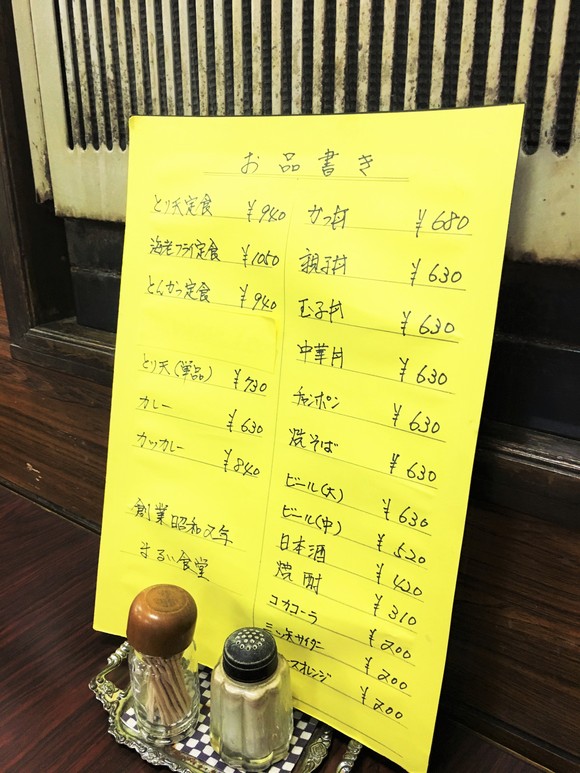 お品書き
とり天定食 ¥940
海老フライ定食 ¥1050
とんかつ定食 ¥940
とり天(単品) ¥730
カレー ¥630
カツカレー ¥840
創業昭和又年
まるい食堂
かつ丼 ¥680
親子丼 ¥630
玉子丼 ¥630
中華丼 ¥630
チャンポン ¥630
焼そば ¥630
ビール(大) ¥630
ビール(中) ¥520
日本酒 ¥420
焼酎 ¥310
コカコーラ ¥200
サイダー ¥200
オレンジ ¥200